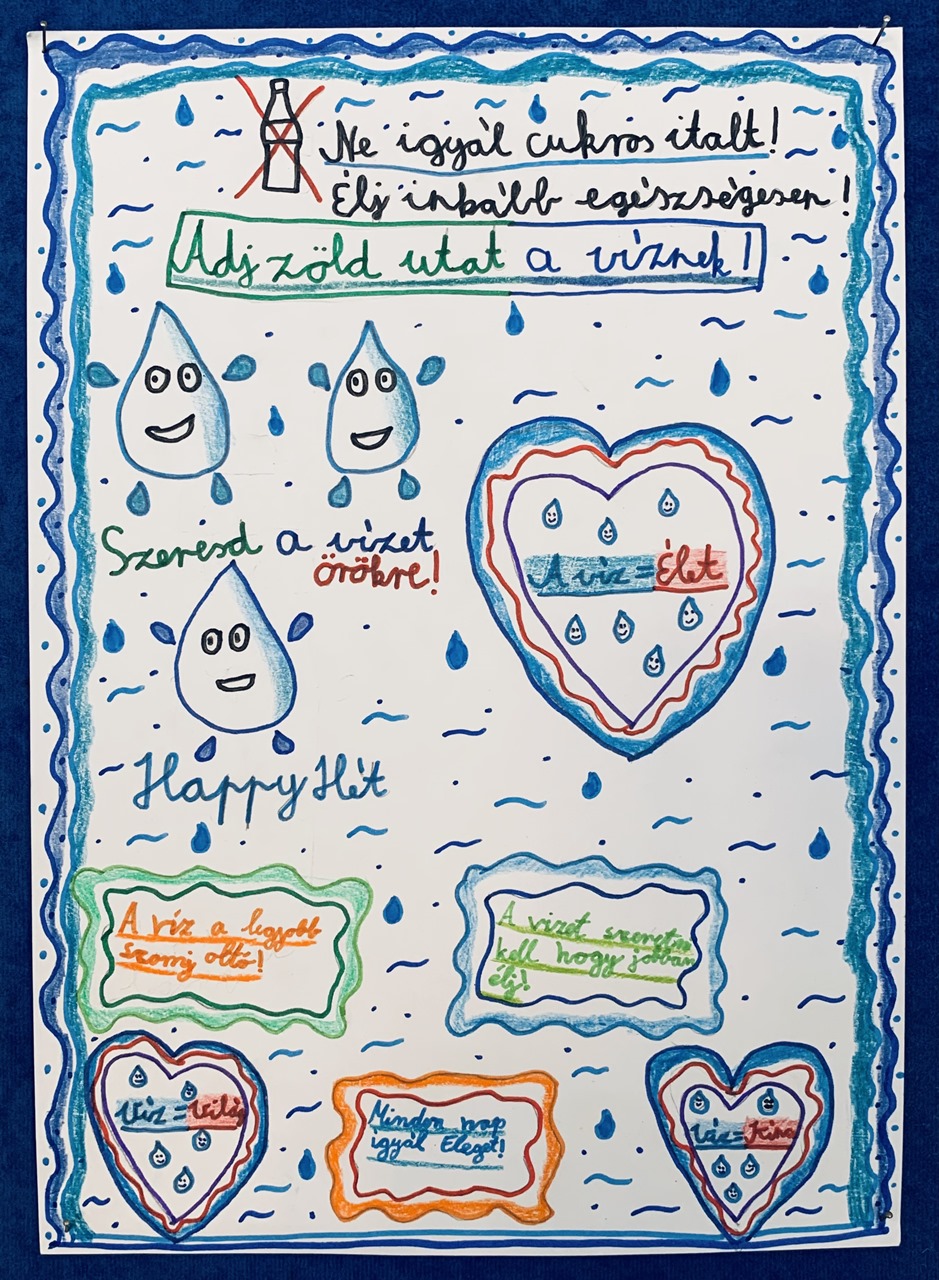 Ne igyál cukros italt!
Élj inkább egészségesen!
Adj zöld utat a víznek!
Szeresd a vizet
örökre!
A víz = Élet
Happy Hét
A víz a legjobb
szomj oltó!
A vizet szeretni
kell hogy jobban
élj!
víz = világ
Minden nap
igyál Eleget!
víz =